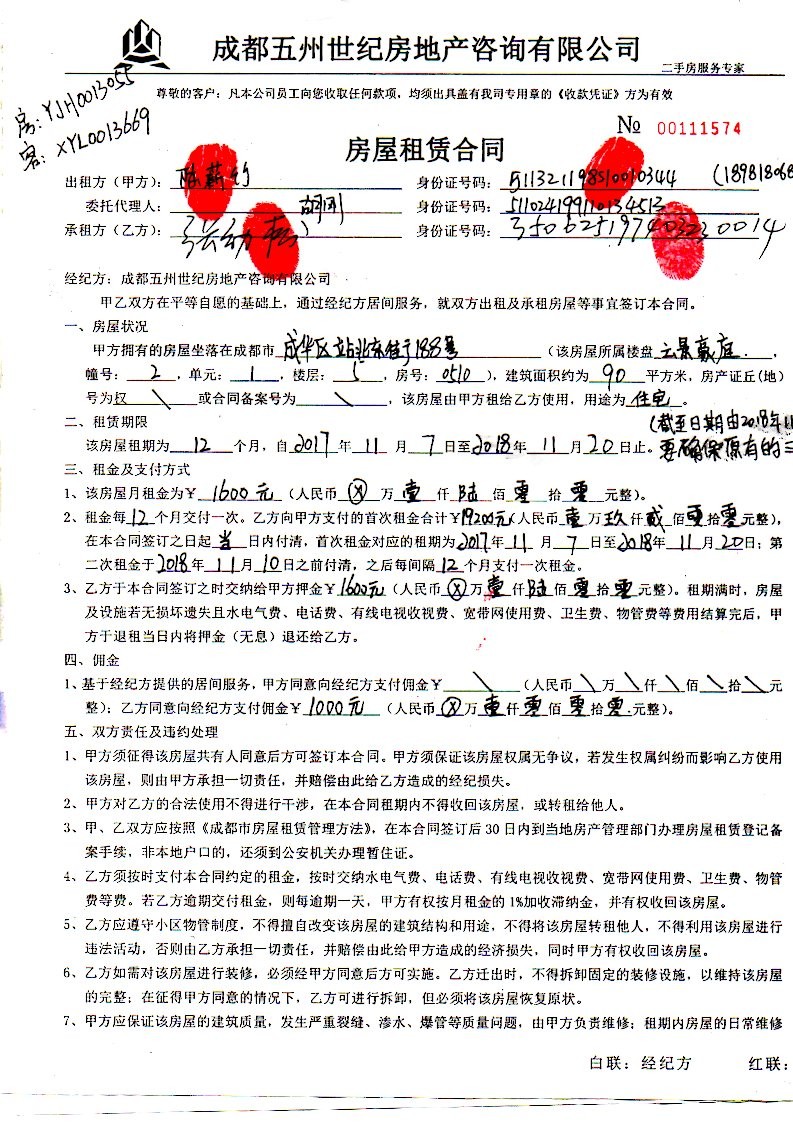 成都五州世纪房地产咨询有限公司
二手房服务专家
尊敬的客户：凡本公司员工向您收取任何款项，均须出具盖有我司专用章的《收款凭证》方为有效
房：YJH0013055
客：XYL0013669
№ 00111574
房屋租赁合同
出租方（甲方）：陈薪竹 身份证号码：511321198510010344 （189818068
委托代理人：胡刚 身份证号码：511024199110134513
承租方（乙方）： 身份证号码：350625197403230014
经纪方：成都五州世纪房地产咨询有限公司
甲乙双方在平等自愿的基础上，通过经纪方居间服务，就双方出租及承租房屋等事宜签订本合同。
一、房屋状况
甲方拥有的房屋坐落在成都市成华区站北东街188号（该房屋所属楼盘云景豪庭.，
幢号：2，单元：1，楼层：5，房号：0510），建筑面积约为90平方米，房产证丘(地)
号为权\或合同备案号为\，该房屋由甲方租给乙方使用，用途为住宅。
二、租赁期限 （截至日期由2018年11
该房屋租期为12个月，自2017年11月7日至2018年11月20日止。要确保原有的三
三、租金及支付方式
1、该房屋月租金为￥1600元（人民币ⓧ万壹仟陆佰零拾零元整）。
2、租金每12个月交付一次。乙方向甲方支付的首次租金合计￥19200元（人民币壹万玖仟贰佰零拾零元整），
在本合同签订之日起当日内付清，首次租金对应的租期为2017年11月7日至2018年11月20日；第
二次租金于2018年11月10日之前付清，之后每间隔12个月支付一次租金。
3、乙方于本合同签订之时交纳给甲方押金￥1600元（人民币ⓧ万壹仟陆佰零拾零元整）。租期满时，房屋
及设施若无损坏遗失且水电气费、电话费、有线电视收视费、宽带网使用费、卫生费、物管费等费用结算完后，甲
方于退租当日内将押金（无息）退还给乙方。
四、佣金
1、基于经纪方提供的居间服务，甲方同意向经纪方支付佣金￥\（人民币\万\仟\佰\拾\元
整）；乙方同意向经纪方支付佣金￥1000元（人民币ⓧ万壹仟零佰零拾零元整）。
五、双方责任及违约处理
1、甲方须征得该房屋共有人同意后方可签订本合同。甲方须保证该房屋权属无争议，若发生权属纠纷而影响乙方使用
该房屋，则由甲方承担一切责任，并赔偿由此给乙方造成的经纪损失。
2、甲方对乙方的合法使用不得进行干涉，在本合同租期内不得收回该房屋，或转租给他人。
3、甲、乙双方应按照《成都市房屋租赁管理方法》，在本合同签订后30日内到当地房产管理部门办理房屋租赁登记备
案手续，非本地户口的，还须到公安机关办理暂住证。
4、乙方须按时支付本合同约定的租金，按时交纳水电气费、电话费、有线电视收视费、宽带网使用费、卫生费、物管
费等费。若乙方逾期交付租金，则每逾期一天，甲方有权按月租金的1%加收滞纳金，并有权收回该房屋。
5、乙方应遵守小区物管制度，不得擅自改变该房屋的建筑结构和用途，不得将该房屋转租他人，不得利用该房屋进行
违法活动，否则由乙方承担一切责任，并赔偿由此给甲方造成的经济损失，同时甲方有权收回该房屋。
6、乙方如需对该房屋进行装修，必须经甲方同意后方可实施。乙方迁出时，不得拆卸固定的装修设施，以维持该房屋
的完整；在征得甲方同意的情况下，乙方可进行拆卸，但必须将该房屋恢复原状。
7、甲方应保证该房屋的建筑质量，发生严重裂缝、渗水、爆管等质量问题，由甲方负责维修；租期内房屋的日常维修
白联：经纪方 红联：